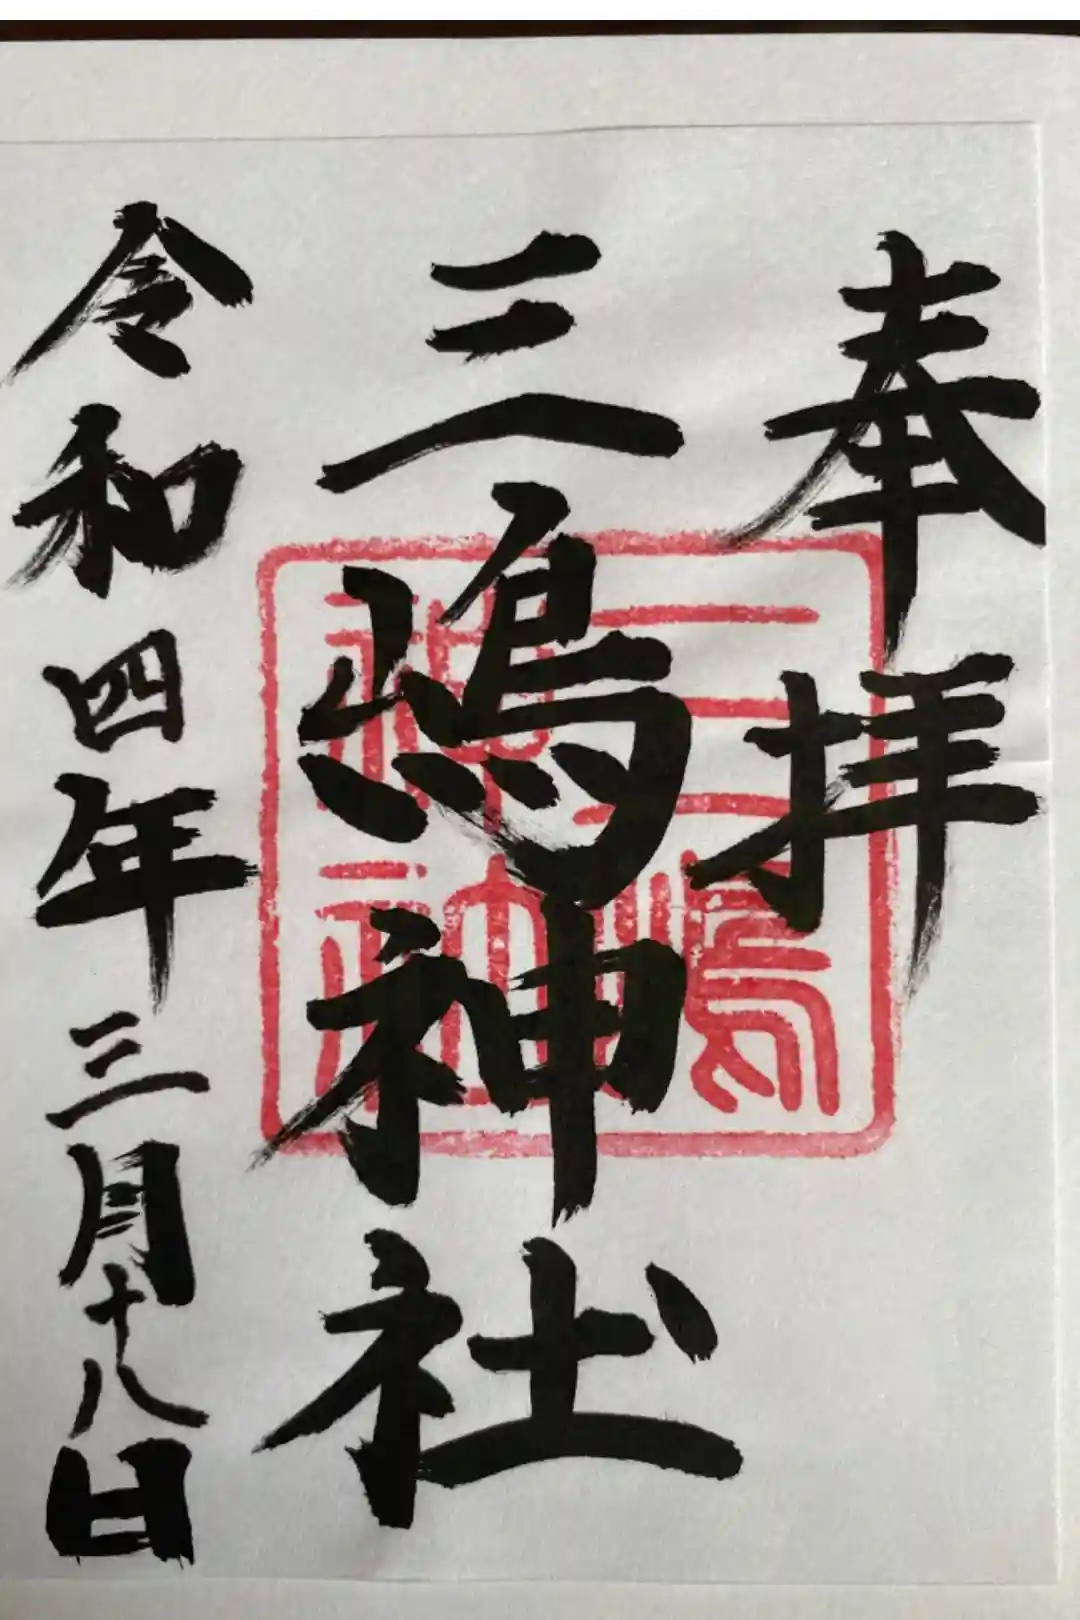 奉拝
三嶋神社
令和四年三月十八日
三嶋
神社